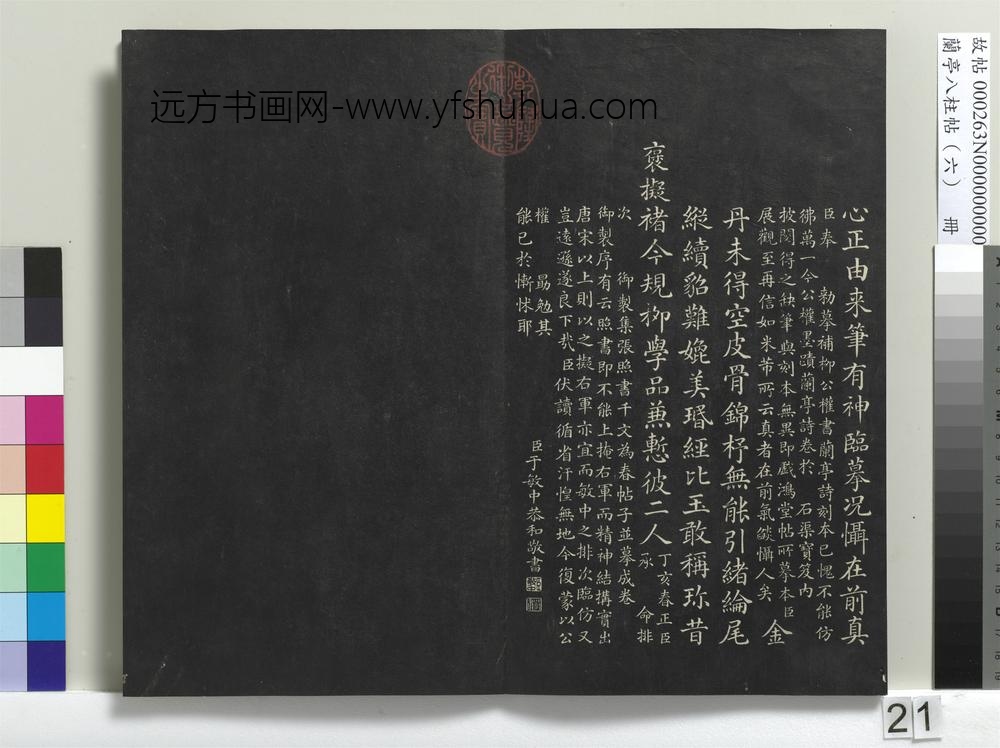 远方书画网-www.yfshuhua.com
故帖 000263N000000000
蘭亭八柱帖（六） 冊
心正由来筆有神臨摹况懾在前真
臣奉 勅摹補柳公權書蘭亭詩刻本已愧不能仿
彿萬一今公權墨蹟蘭亭詩卷於 石渠寶笈内
披閲得之缺筆與刻本無異即戲鴻堂帖所摹本臣
展觀至再信如米芾所云真者在前氣燄懾人矣
金
丹未得空皮骨錦杼無能引緒綸尾
縱續貂難娩美瑉經比玉敢稱珎昔
褒擬
褚今規柳學品兼慙彼二人
丁亥春正臣
承 命排
次 御製集張照書千文為春帖子並摹成卷
御製序有云照書即不能上掩右軍而精神結構實出
唐宋以上則以之擬右軍亦宜而敏中之排次臨仿又
豈遠遜遂良下哉臣伏讀循省汗惶無地今復蒙以公
權 勗勉其
能已於慚怵耶
臣于敏中恭和敬書
21